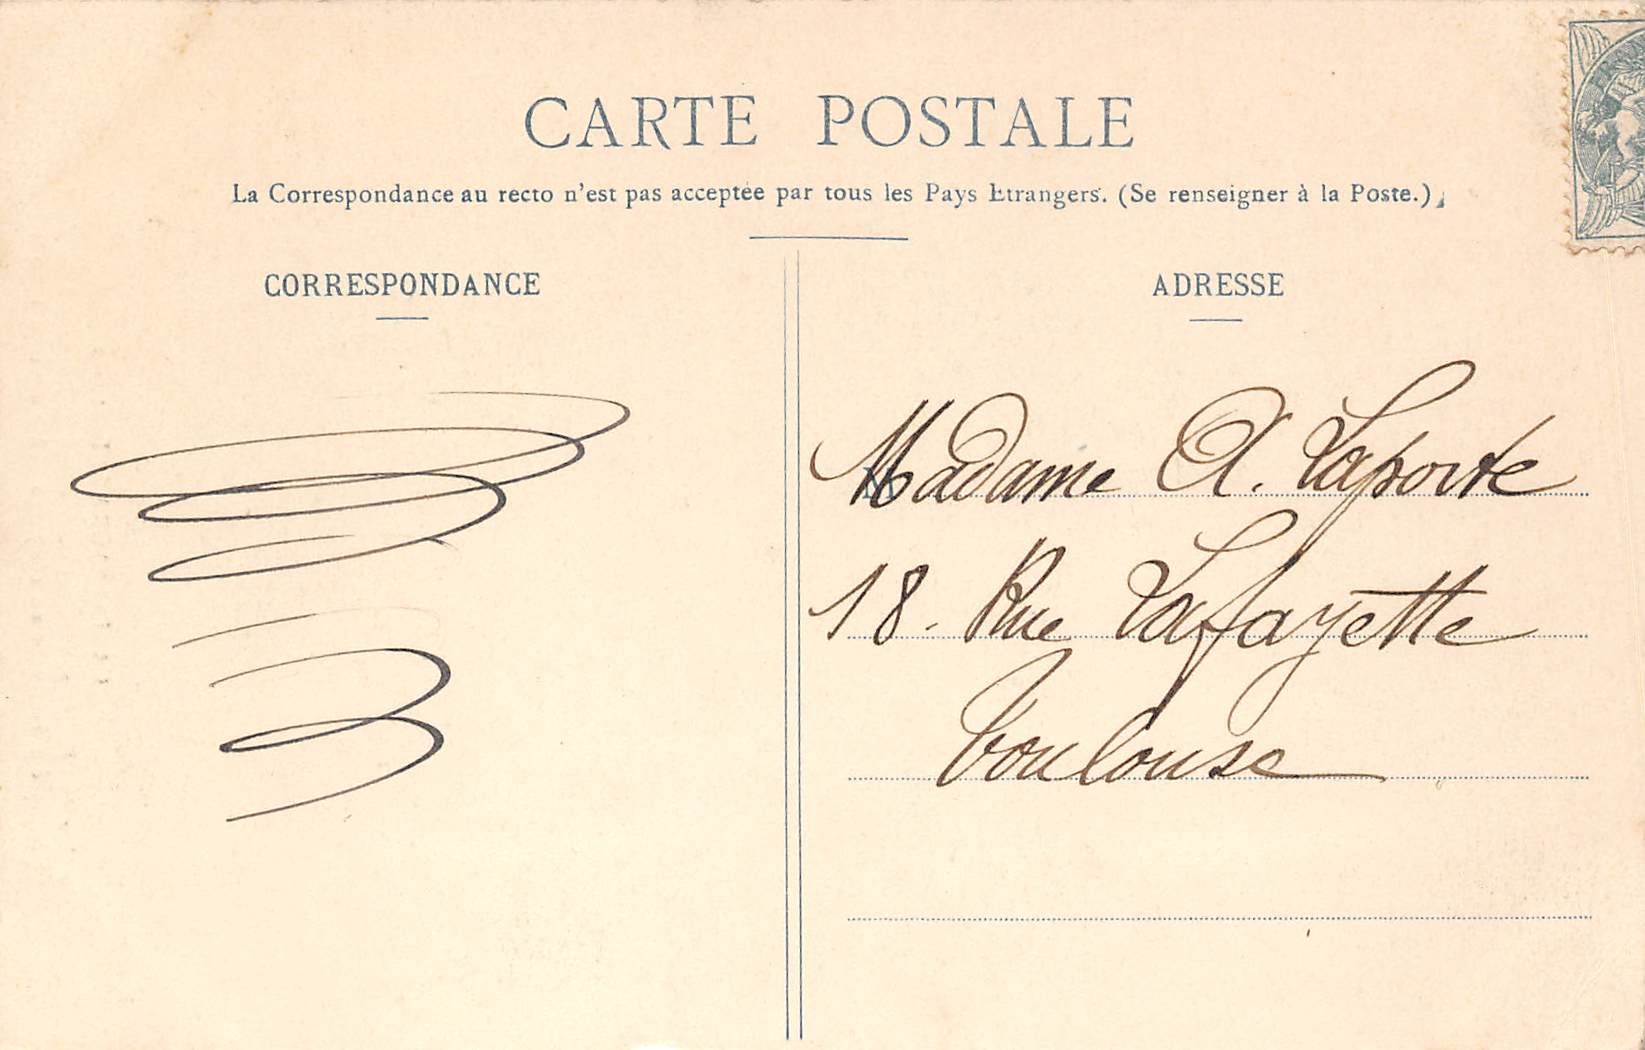 CARTE POSTALE
La Correspondance au recto n'est pas acceptée par tous les Pays Etrangers. (Se renseigner à la Poste.)
CORRESPONDANCE
ADRESSE
Madame A. Laporte
18. Rue Lafayette
Toulouse